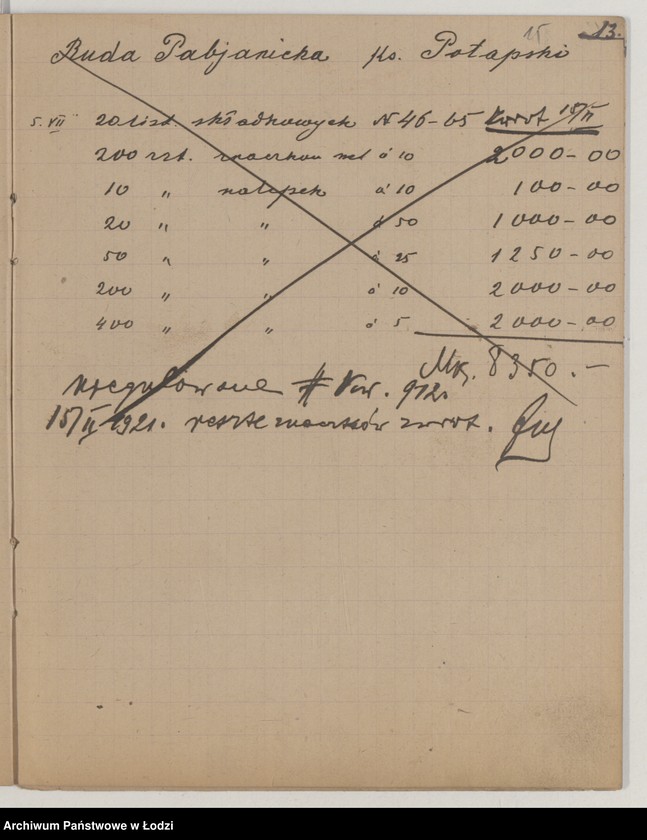 15 13.
Ruda Pabjanicka Ks. Potapski
5.VII 20 list. składkowych N 46-65 Zwrot 15/II
200 szt. znaczków á 10 2000-00
10 " nalepek á 10 100-00
20 " " á 50 1000-00
50 " " á 25 1250-00
200 " " á 10 2000-00
400 " " á 5 2000-00
Mk. 8350.-
Uregulowane # Kw. 912.
15/II 1921. resztę znaczków zwrot.
Archiwum Państwowe w Łodzi